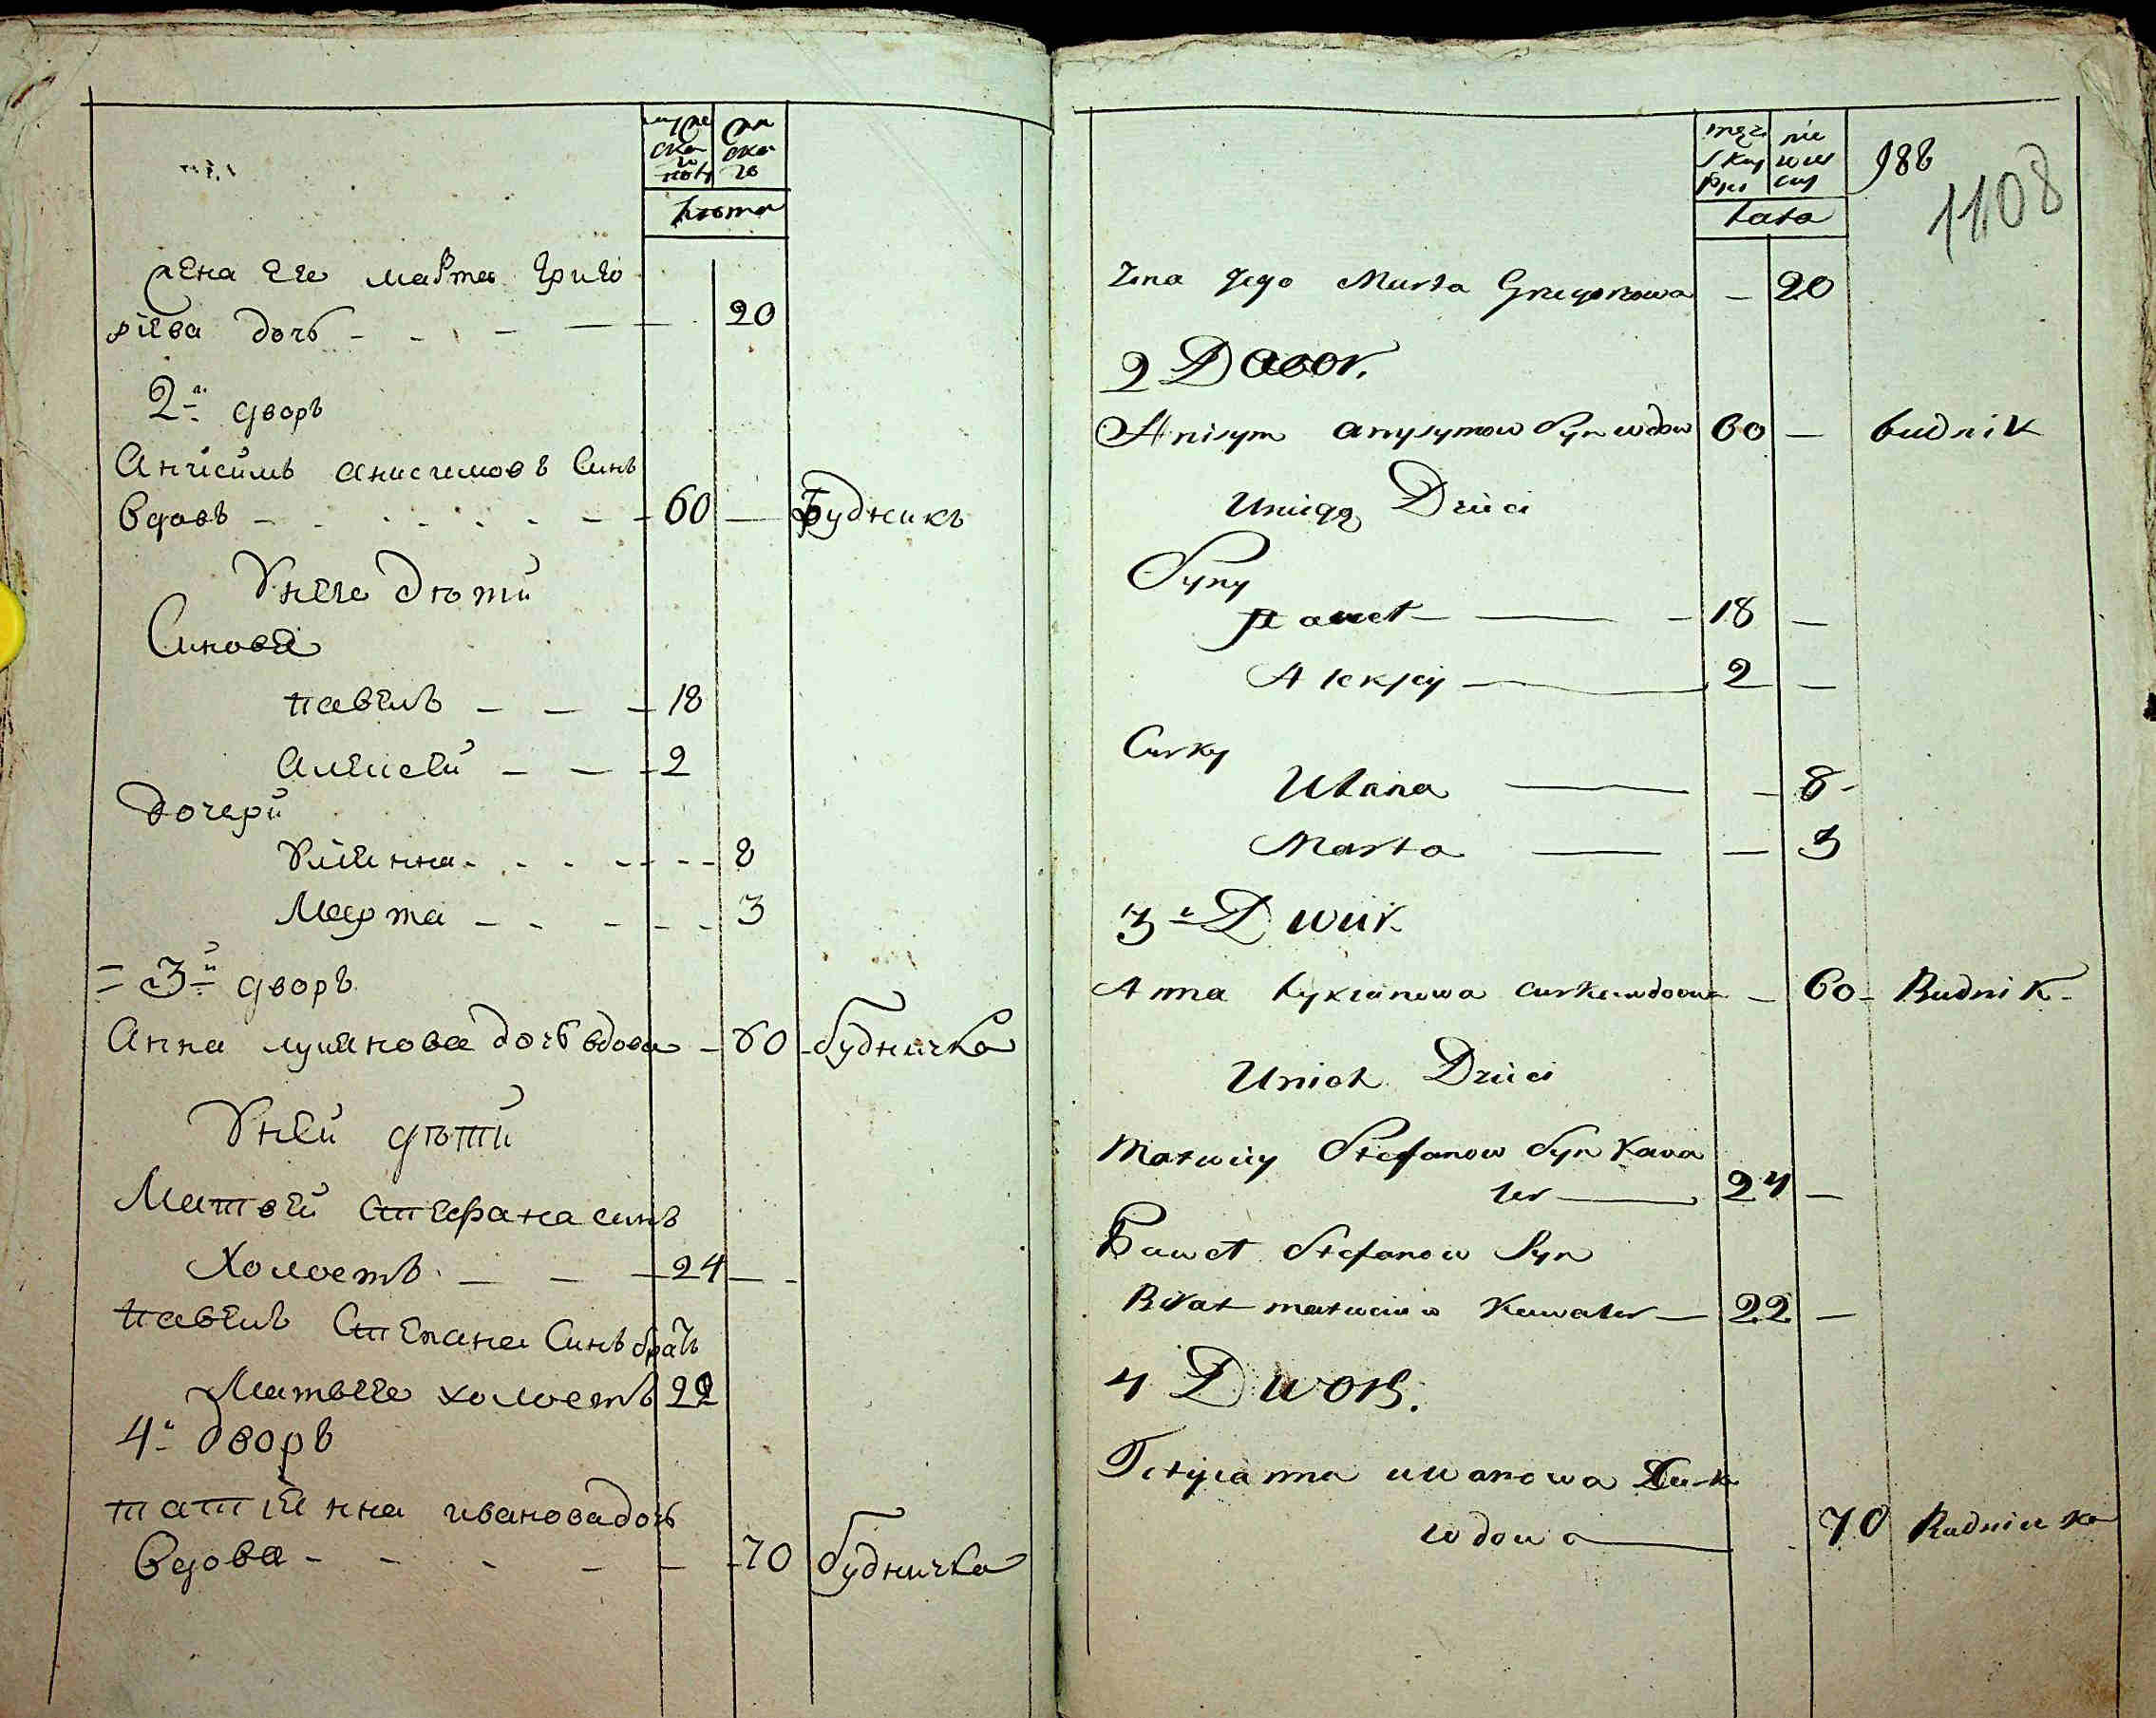 мужe ска го полу
жен ска го
лѣта
жена Его марта Григо
риева дочь - - - - 20
2й дворъ
Анисимъ анисимовъ Синъ
вдовъ - - - - 60 — Будникъ
Унего дѣти
Синовя
павелъ - - - 18
Алексей - - - 2
дочери
Улиянна - - - - 8
Марта - - - - 3
= 3й дворъ
Анна лукянова дочь вдова - 60 - будничка
Уней дѣти
Матвей Стефана синъ
Холостъ - - - 24 — -
павелъ Степана Синъ братъ
Матвеев холостъ 22
4й дворъ
татиянна иванова дочь
вдова - - - - - 70 будничка
męz skey płci
nie wies cey
lata
986
1108
Zona Jego Marta Gregorowa — 20
2 Dwor.
Anisym anysymow Syn wdow 60 — budnik
Uniego Dzieci
Syny
Paweł — — 18 —
Alexsey — 2 —
Curky
Ulana — — 8 -
Marta — — 3
3й Dwur
Anna Lykianowa curka wdowa — 60 - Budnik -
Unieh Dzieci
Matwiey Stefanow Syn Kawa
ler — 24 —
Paweł Stefanow Syn
Brat matweiow Kawaler — 22 —
4 Dwor.
Tetyianna iwanowa Curka
wdowa — 70 Budniczka